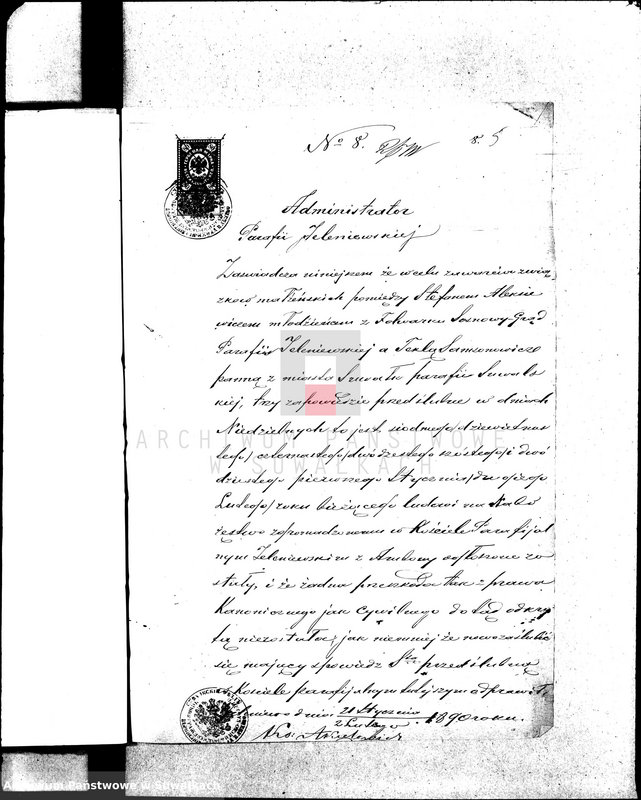 No 8.
8. 5
Administrator
Parafii Jeleniewskiej
Zaświadcza niniejszem że w celu zawarcia zwią-
zków małżeńskich pomiędzy Stefanem Aleksie
wiczem młodzieńcem z Folwarku Sosnowy-Grąd
Parafii Jeleniewskiej a Teklą Samsonowicz
panną z miasta Suwałk parafii Suwals
kiej, trzy zapowiedzie przedślubne w dniach
Niedzielnych to jest siódmego/dziewietnas
tego/ czternastego/dwódziestego szóstego/ i dwó
dziestego pierwszego Stycznia/drugiego
Lutego/ roku bieżącego ludowi na Nabo
żeństwo zgromadzonemu w Kościele Parafijal
nym Jeleniewskim z Ambony ogłoszone zo
stały, i że żadna przeszkoda tak z prawa
Kanonicznego jak cywilnego dotąd odkry
tą niezostała; jak niemniej że nowozaślubić
się mający spowiedź Stą przedślubną
w Kościele parafijalnym tutejszym odprawił.
dnia 21 Stycznia
2 Lutego 1890 roku.
ARCHIWUM PAŃSTWOWE
W SUWAŁKACH
Archiwum Państwowe w Suwałkach